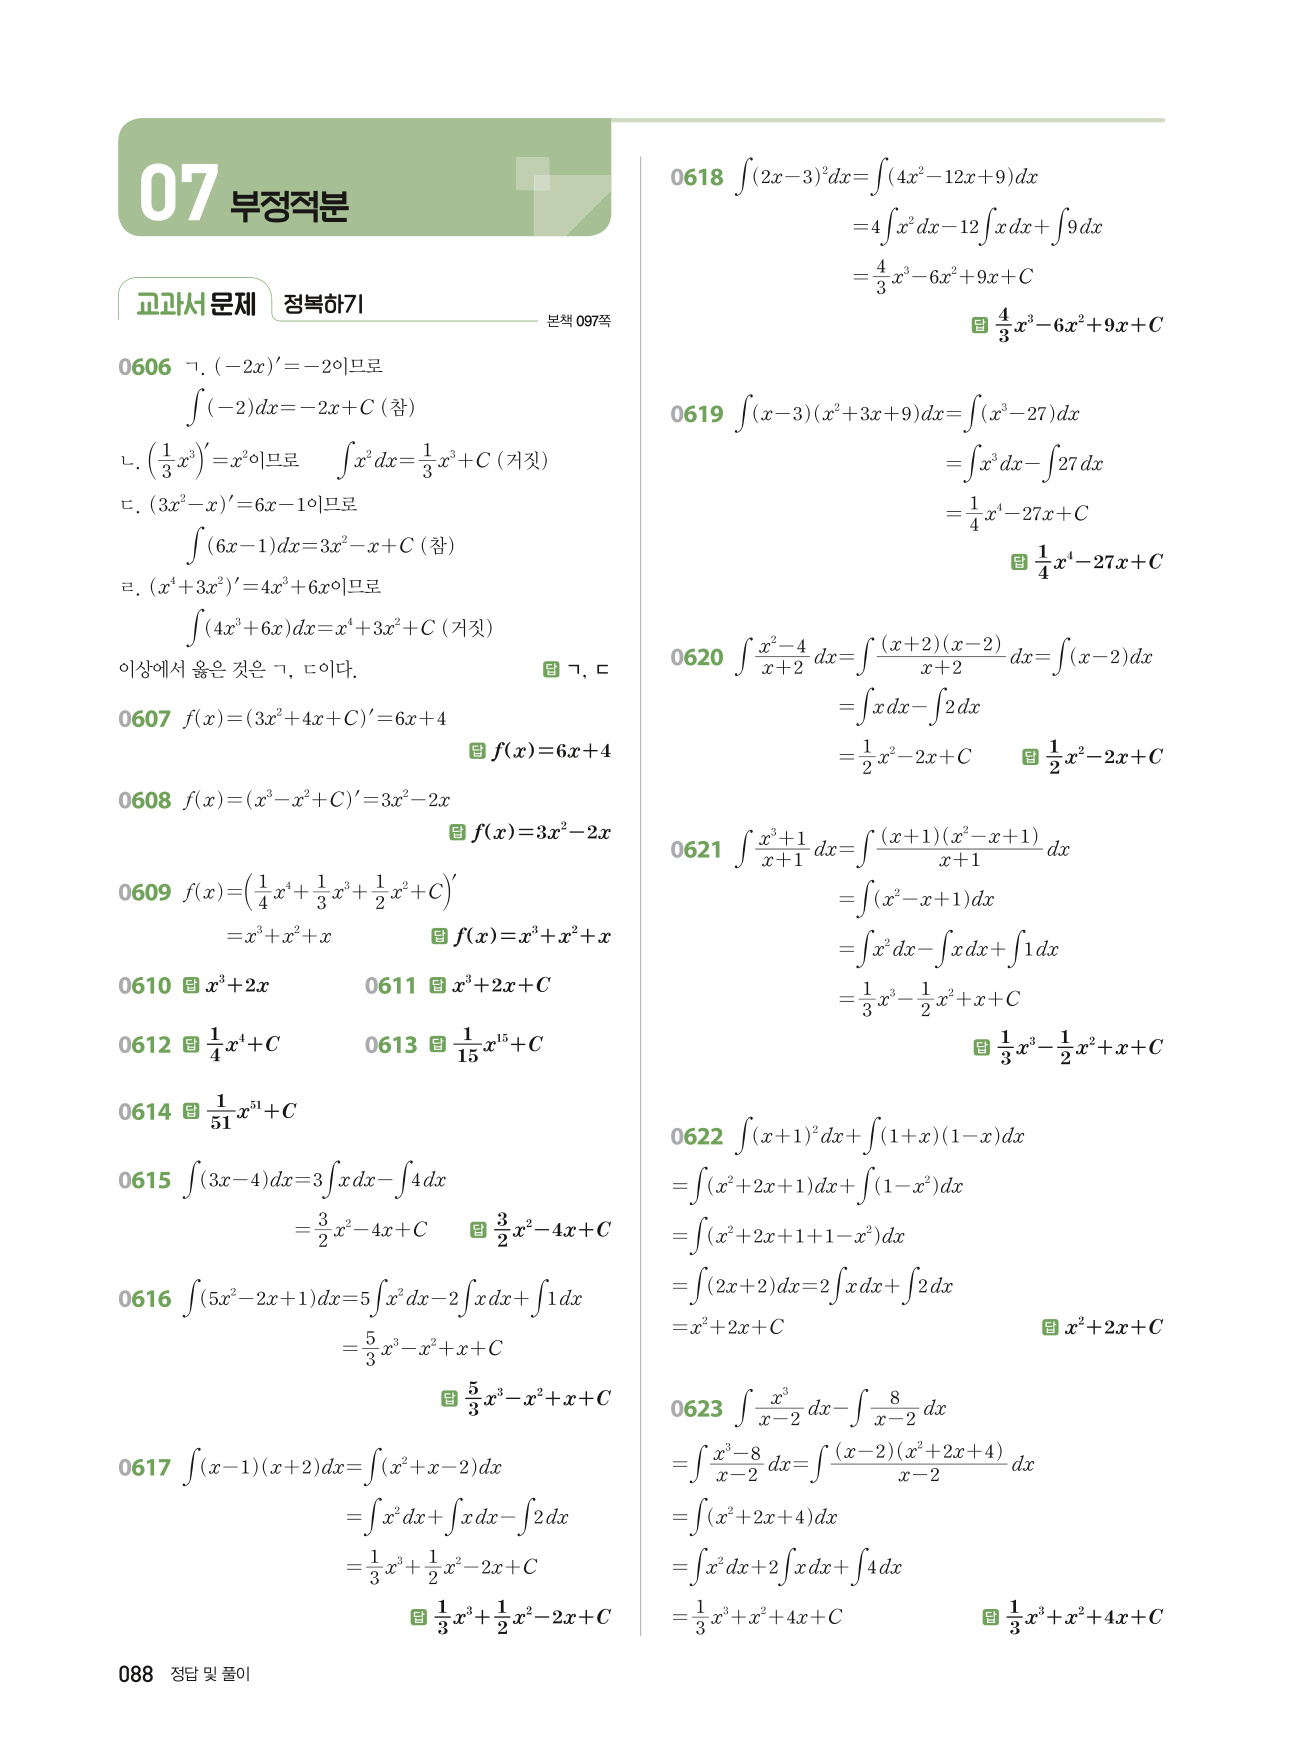 07 부정적분
교과서 문제 정복하기
본책 097쪽
0606 ㄱ. (-2x)′=-2이므로
∫(-2)dx=-2x+C (참)
ㄴ. (1/3 x³)′=x²이므로 ∫x²dx=1/3 x³+C (거짓)
ㄷ. (3x²-x)′=6x-1이므로
∫(6x-1)dx=3x²-x+C (참)
ㄹ. (x⁴+3x²)′=4x³+6x이므로
∫(4x³+6x)dx=x⁴+3x²+C (거짓)
이상에서 옳은 것은 ㄱ, ㄷ이다. 답 ㄱ, ㄷ
0607 f(x)=(3x²+4x+C)′=6x+4
답 f(x)=6x+4
0608 f(x)=(x³-x²+C)′=3x²-2x
답 f(x)=3x²-2x
0609 f(x)=(1/4 x⁴+1/3 x³+1/2 x²+C)′
=x³+x²+x 답 f(x)=x³+x²+x
0610 답 x³+2x 0611 답 x³+2x+C
0612 답 1/4 x⁴+C 0613 답 1/15 x¹⁵+C
0614 답 1/51 x⁵¹+C
0615 ∫(3x-4)dx=3∫xdx-∫4dx
=3/2 x²-4x+C 답 3/2 x²-4x+C
0616 ∫(5x²-2x+1)dx=5∫x²dx-2∫xdx+∫1dx
=5/3 x³-x²+x+C
답 5/3 x³-x²+x+C
0617 ∫(x-1)(x+2)dx=∫(x²+x-2)dx
=∫x²dx+∫xdx-∫2dx
=1/3 x³+1/2 x²-2x+C
답 1/3 x³+1/2 x²-2x+C
0618 ∫(2x-3)²dx=∫(4x²-12x+9)dx
=4∫x²dx-12∫xdx+∫9dx
=4/3 x³-6x²+9x+C
답 4/3 x³-6x²+9x+C
0619 ∫(x-3)(x²+3x+9)dx=∫(x³-27)dx
=∫x³dx-∫27dx
=1/4 x⁴-27x+C
답 1/4 x⁴-27x+C
0620 ∫(x²-4)/(x+2) dx=∫(x+2)(x-2)/(x+2) dx=∫(x-2)dx
=∫xdx-∫2dx
=1/2 x²-2x+C 답 1/2 x²-2x+C
0621 ∫(x³+1)/(x+1) dx=∫(x+1)(x²-x+1)/(x+1) dx
=∫(x²-x+1)dx
=∫x²dx-∫xdx+∫1dx
=1/3 x³-1/2 x²+x+C
답 1/3 x³-1/2 x²+x+C
0622 ∫(x+1)²dx+∫(1+x)(1-x)dx
=∫(x²+2x+1)dx+∫(1-x²)dx
=∫(x²+2x+1+1-x²)dx
=∫(2x+2)dx=2∫xdx+∫2dx
=x²+2x+C 답 x²+2x+C
0623 ∫x³/(x-2) dx-∫8/(x-2) dx
=∫(x³-8)/(x-2) dx=∫(x-2)(x²+2x+4)/(x-2) dx
=∫(x²+2x+4)dx
=∫x²dx+2∫xdx+∫4dx
=1/3 x³+x²+4x+C 답 1/3 x³+x²+4x+C
088 정답 및 풀이